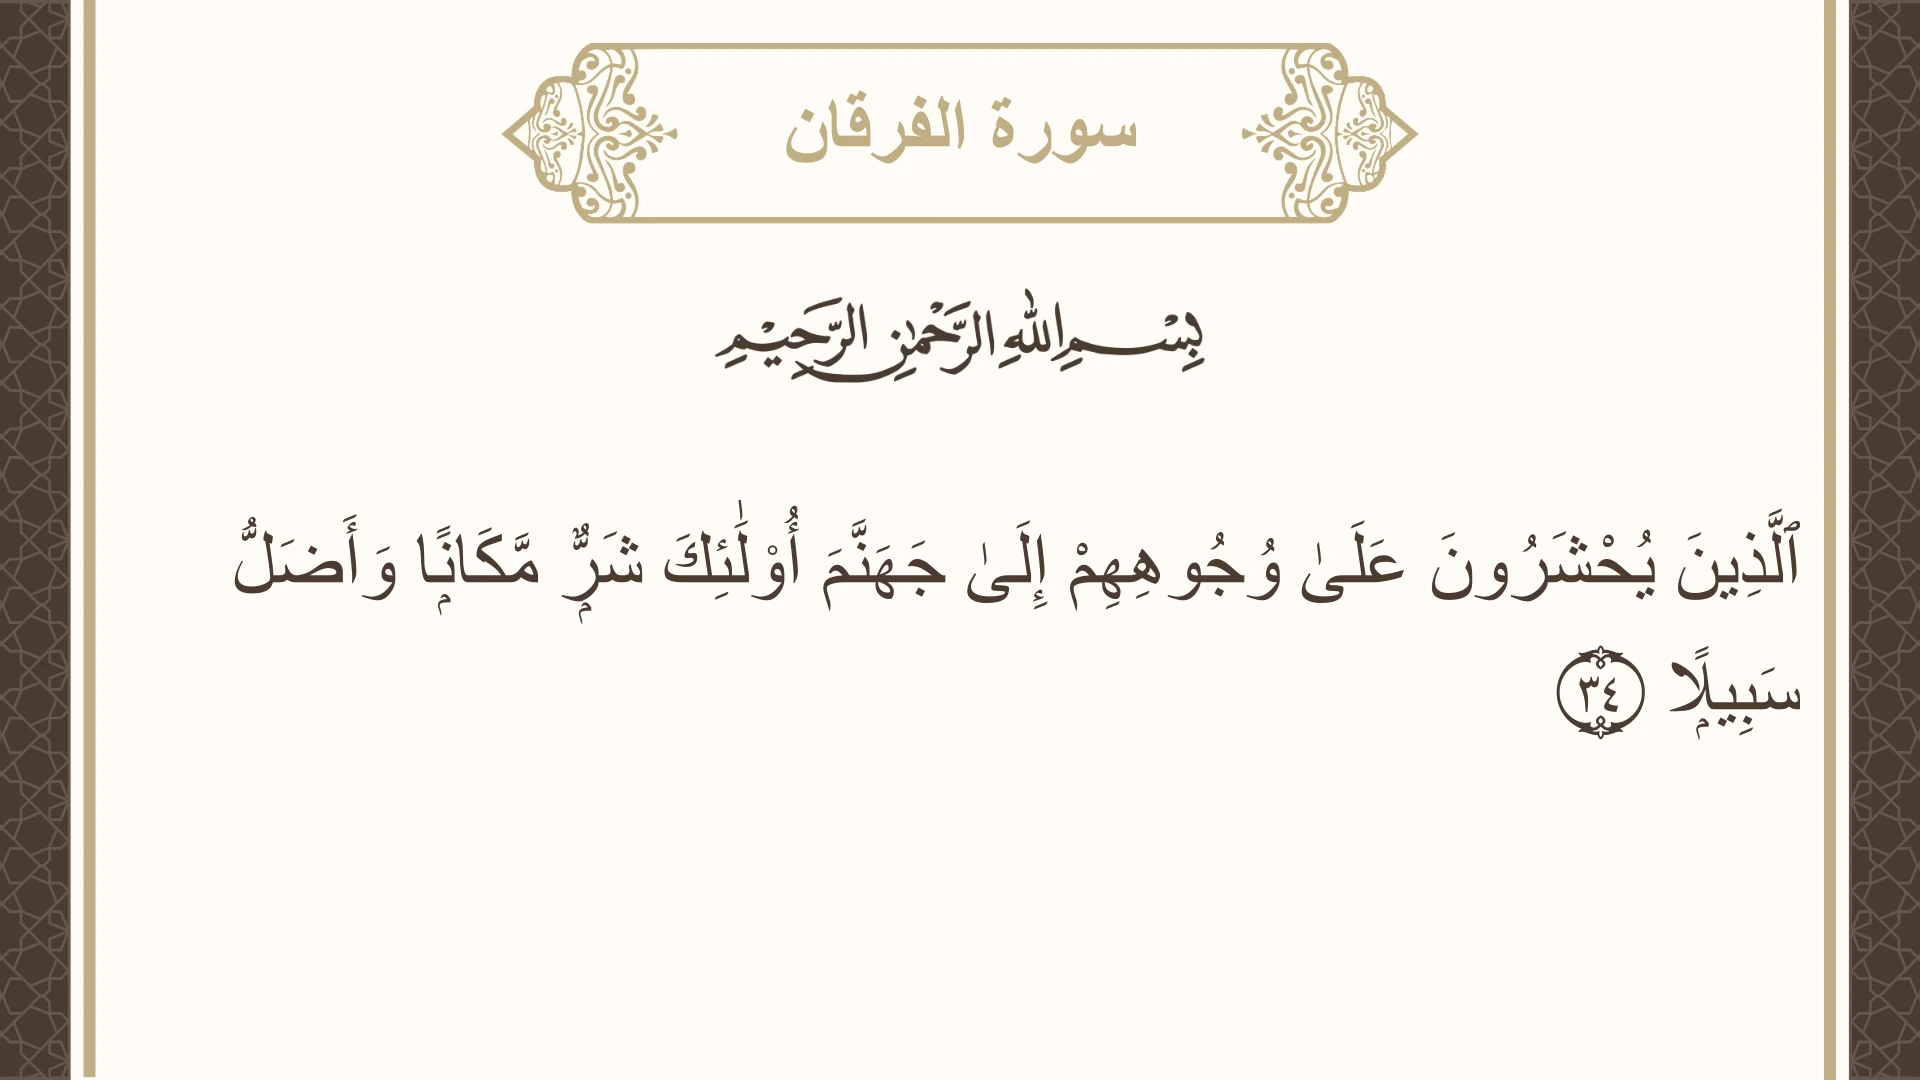 سورة الفرقان
بِسْمِ اللهِ الرَّحْمٰنِ الرَّحِيْمِ
ٱلَّذِينَ يُحْشَرُونَ عَلَىٰ وُجُوهِهِمْ إِلَىٰ جَهَنَّمَ أُوْلَٰٓئِكَ شَرٌّۭ مَّكَانًۭا وَأَضَلُّ
سَبِيلًۭا ٣٤